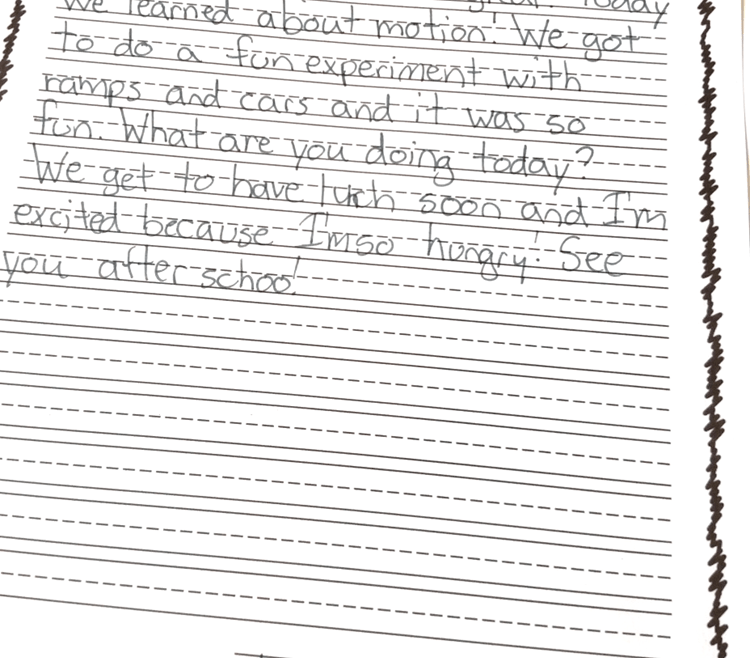 Today
We learned about motion! We got
to do a fun experiment with
ramps and cars and it was so
fun. What are you doing today?
We get to have lunch soon and I'm
excited because I'm so hungry! See
you after school